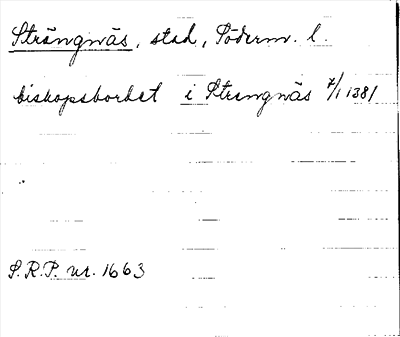 Strängnäs, stad, Söderm. l.
biskopsbordet i Strengnäs 7/1 1381
S.R.P. nr. 1663